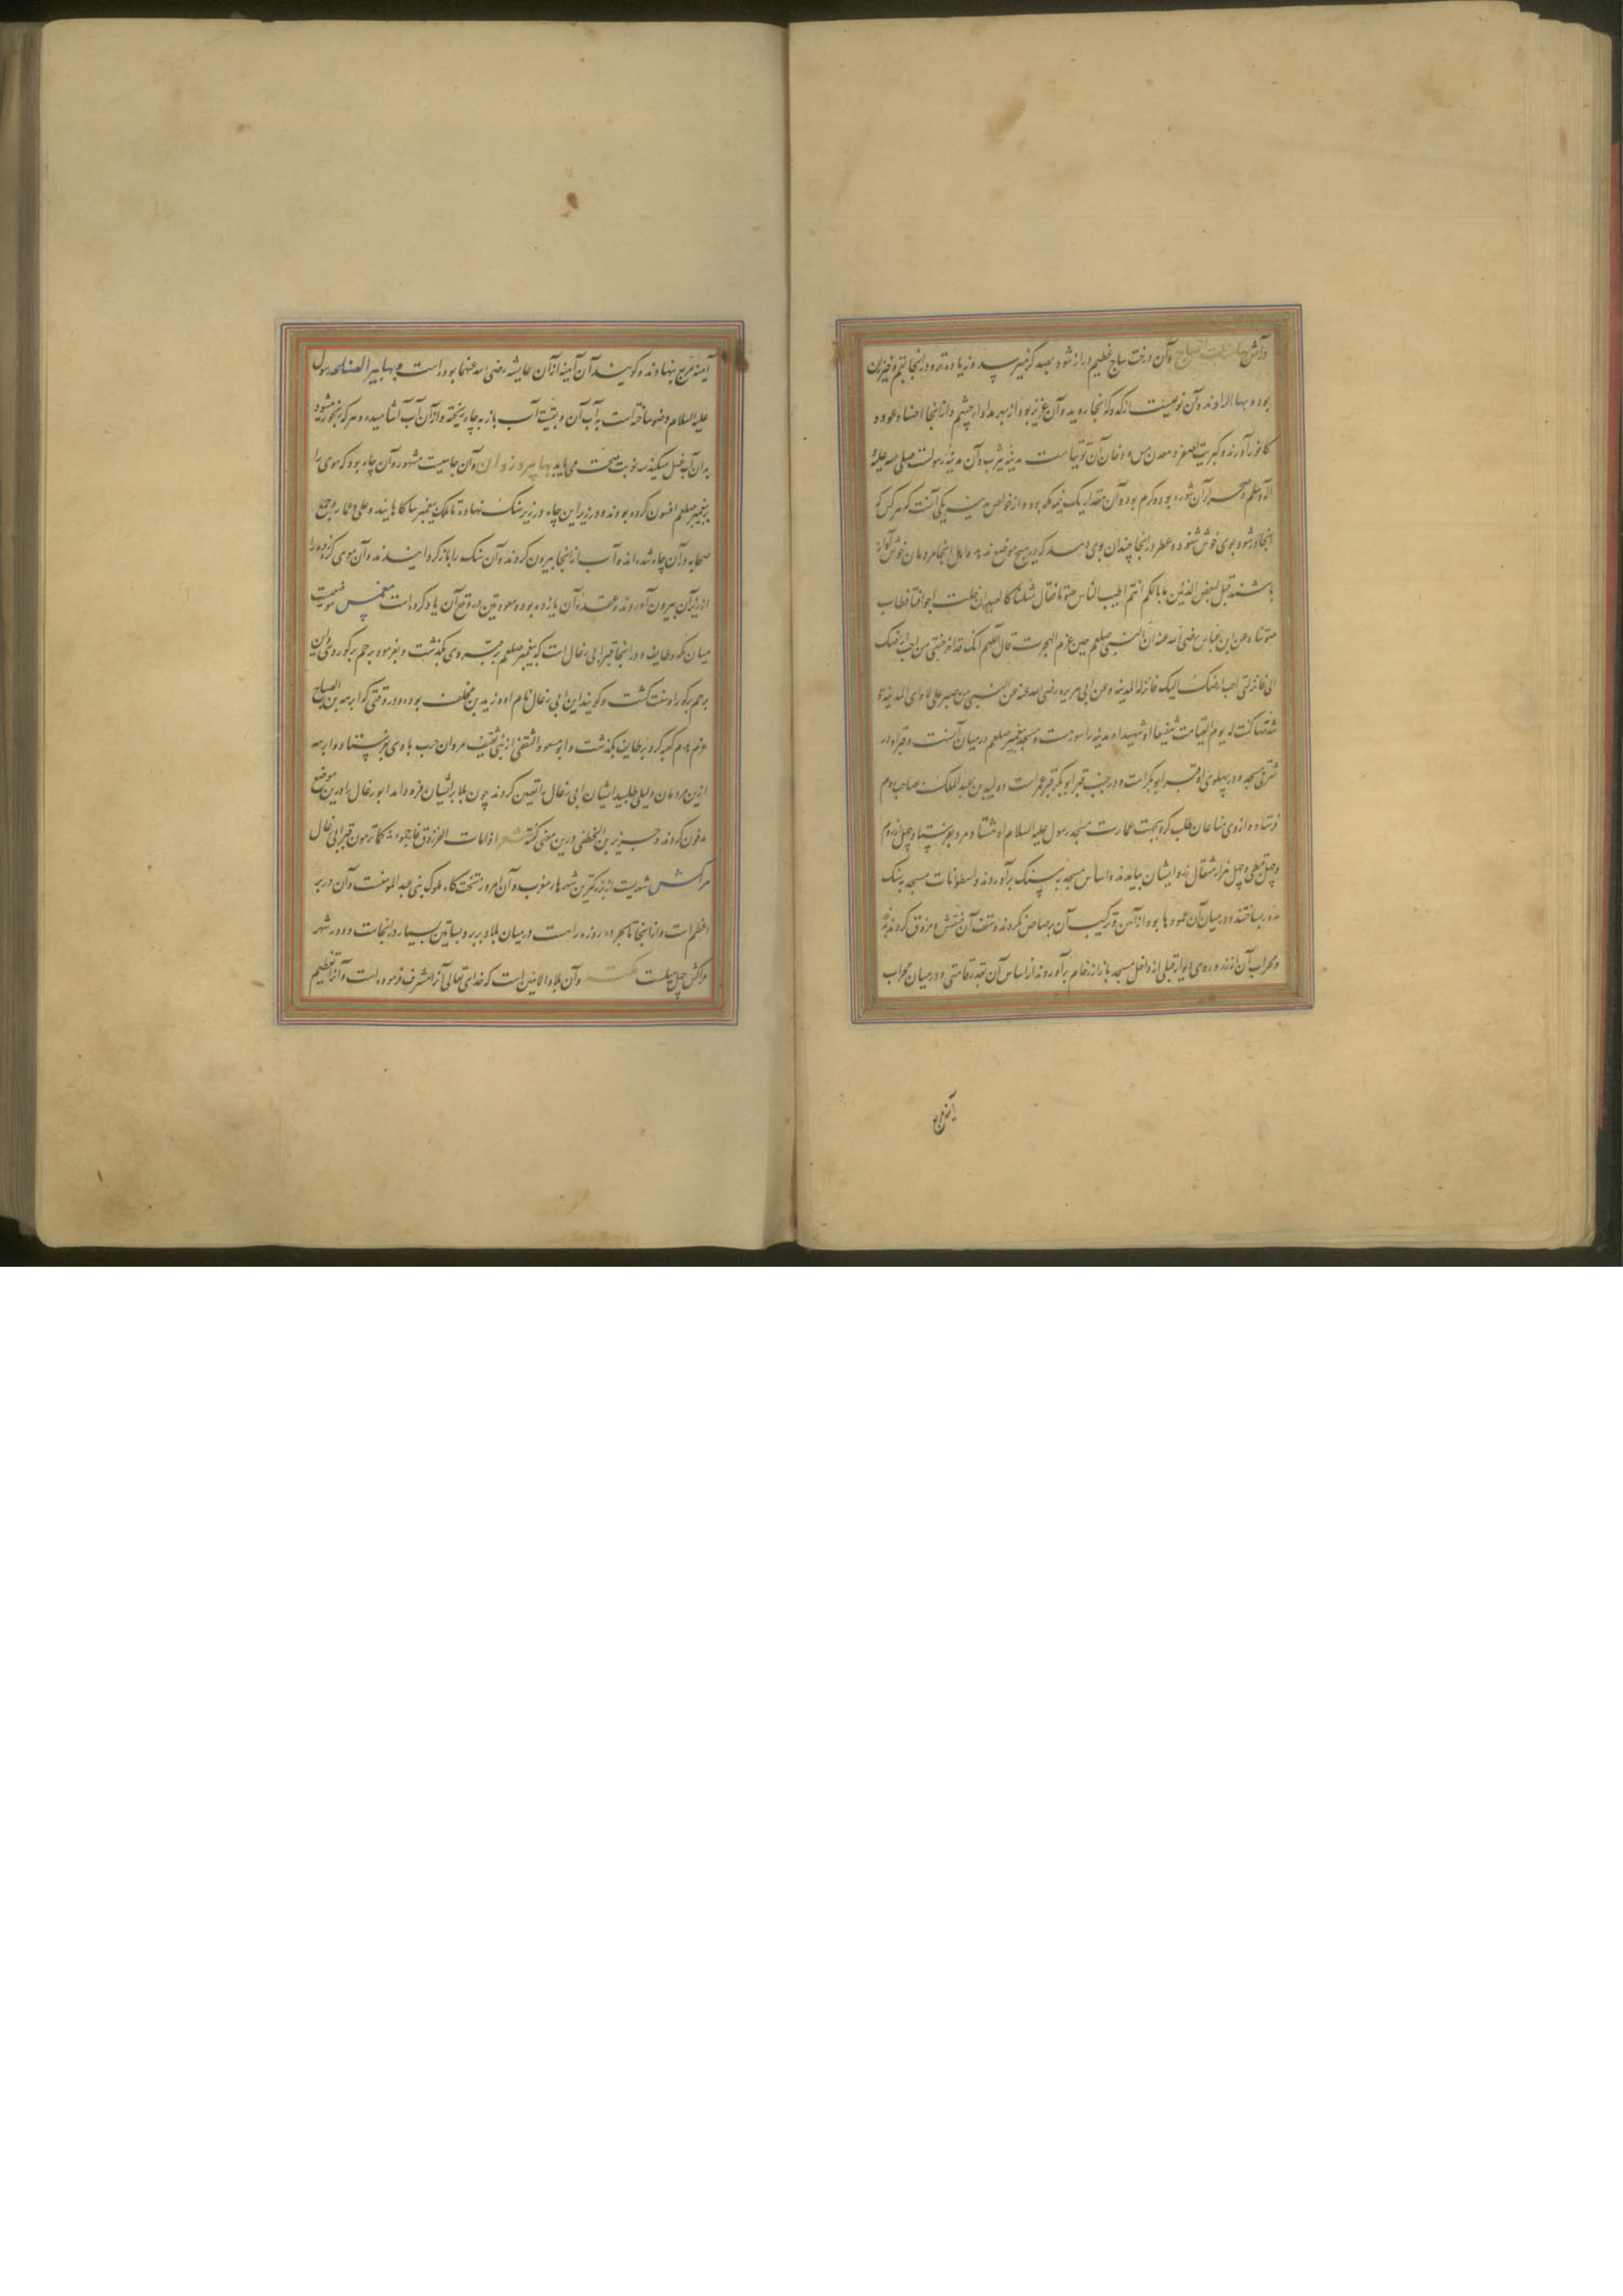 وآتش وآن درخت ساج عظیم دراز شود بصد گز برسد و زیاده و در انجا بقم و خیزران
بود و بها الراوند وآن نوعیست از کدو که انجا روید وآن عزیز بود از بهر مداوا چشم و از انجا عود و
کافور آورند و کبریت اصفر و معدن مس و دخان آن توتیاست مدینه یثرب وآن مدینه رسولست صلی الله علیه
وآله وسلم شوره بود و گرم بود وآن مقدار یک نیمه مکه بود و از خواص مدینه یکی آنست که هر کس که
انجا در شود بوی خوش شنود و عطر در انجا چندان بوی دهد که در هیچ موضع ندهد و اهل انجا مردمان خوش آواز
باشند قیل لبعض المدنیین ما بالکم انتم اطیب الناس صوتا فقال مثلنا کالعیدان خلت اجوافنا فطاب
صوتنا وعن ابن عباس رضی الله عنه ان النبی صلعم حین عزم الهجرت قال اللهم انک قد اخرجتنی من احب ارضک
الی فانزلنی احب ارضک الیک فانزله المدینه وعن ابی هریره رضی الله عنه عن النبی من صبر علی لاوای المدینه و
شدتها کنت له یوم القیامت شفیعا او شهیدا و مدینه را سورست و مسجد پیغمبر صلعم در میان آنست و قبر او در
شرقی مسجد و در پهلوی او قبر ابوبکرست و در جنب قبر ابوبکر قبر عمرست و ولید بن عبد الملک بصاحب روم
فرستاد و از وی صناعان طلب کرد بجهت عمارت مسجد رسول علیه السلام او هشتاد مرد بفرستاد چهل از روم
و چهل قبطی و چهل هزار مثقال زر و ایشان بیامدند و اساس مسجد به سنگ برآوردند و اسطوانات مسجد به سنگ
مدور بساختند و در میان آن عمودها بود از آهن و ترکیب آن برصاص کردند و سقف آن منقش و مزوق کردند به زر
و محراب آن از زر و روی دیوار قبلی از داخل مسجد بازار از رخام برآوردند از اساس آن بقدر قامتی و در میان محراب
آینه مربع
آینه مربع بنهادند و گویند آن آینه از آن عایشه رضی الله عنهما بوده است و بها بیر رسول
علیه السلام وضو ساخته است به آب آن و بقیت آب باز به چاه ریخته و از آن آب آشامیده و هر که رنجور میشود
به آن آب غسل میکند سه نوبت صحت می یابد بها بیر ذروان وآن جاهیست مشهور وآن چاه بود که موی را
بر پیغمبر صلعم افسون کرده بودند و در زیر این چاه در زیر سنگ نهاده تا ملک پیغمبر را آگاهانید و علی و عمار و جمع
صحابه در آن چاه شده اند و آب از انجا بیرون کردند و آن سنگ را باز گردانیدند و آن موی گره زده را
از زیر آن بیرون آوردند و عقده آن یازده بود و معوذتین در وقع آن یاد کرده است مغمس موضعیست
میان مکه و طایف و در اینجا قبر ابی رغال است که پیغمبر صلعم بر قبر وی بگذشت و بفرمود برجم بر گور وی و این
برجم بر گور او سنت گشت و گویند این ابی رغال نام او زید بن مخلف بود و در وقتی که ابرهه بن الصباح
عزم هدم کعبه کرد بر طایف بگذشت و ابو مسعود الثقفی از بنی ثقیف مردان حرب با وی بفرستاد و ابرهه
ازین مردمان دلیلی طلبید ایشان ابی رغال را تعیین کردند چون بلا بر ایشان فرود آمد ابو رغال را درین موضع
مدفون کردند و جریر بن الخطفی درین معنی گفته شعر اذا مات الفرزدق فارجموه کما ترمون قبر ابی رغال
مراکش شهریست از بزرگترین شهرهاء مغرب وآن امروز تختگاه ملوک بنی عبد المومنست وآن در بر
اعظم است و از انجا تا بحر ده روزه راهست در میان بلاد بربر و بساتین بسیار در انجاست و دور شهر
مراکش چهل میلست مکه وآن بلاد الامین است که خدای تعالی آنرا مشرف فرموده است و آنرا تعظیم